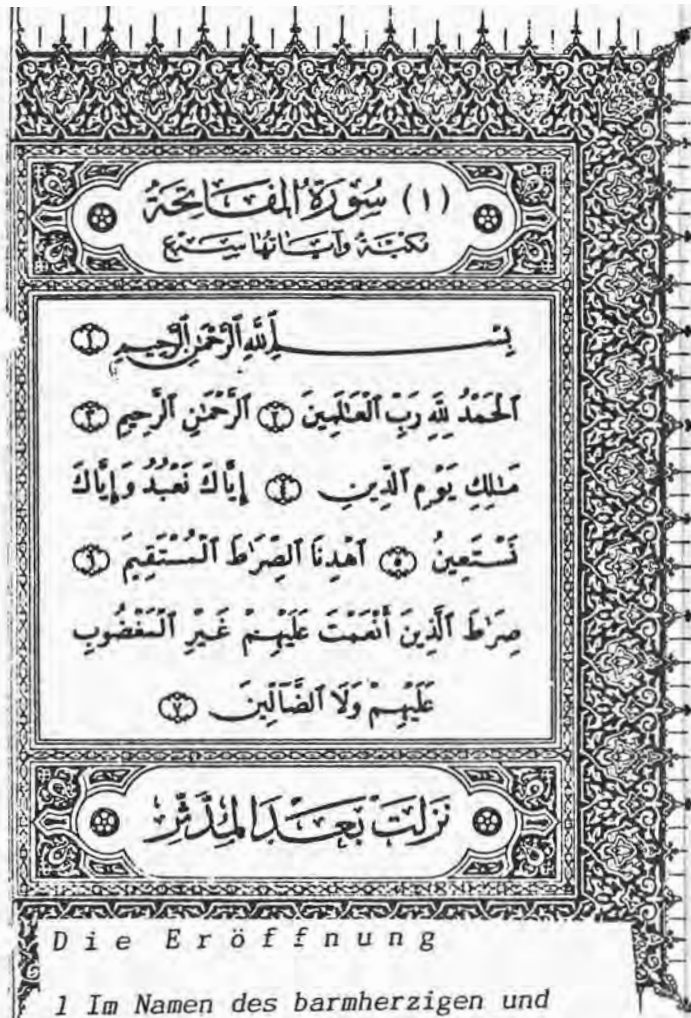 (١) سُورَةُ الْفَاتِحَةِ
مَكِّيَّةٌ وَآيَاتُهَا سَبْعٌ
بِسْمِ ٱللَّهِ ٱلرَّحْمَٰنِ ٱلرَّحِيمِ ١
ٱلْحَمْدُ لِلَّهِ رَبِّ ٱلْعَٰلَمِينَ ٢ ٱلرَّحْمَٰنِ ٱلرَّحِيمِ ٣
مَٰلِكِ يَوْمِ ٱلدِّينِ ٤ إِيَّاكَ نَعْبُدُ وَإِيَّاكَ
نَسْتَعِينُ ٥ ٱهْدِنَا ٱلصِّرَٰطَ ٱلْمُسْتَقِيمَ ٦
صِرَٰطَ ٱلَّذِينَ أَنْعَمْتَ عَلَيْهِمْ غَيْرِ ٱلْمَغْضُوبِ
عَلَيْهِمْ وَلَا ٱلضَّآلِّينَ ٧
نَزَلَتْ بَعْدَ الْمُدَّثِّرِ
Die Eröffnung
1 Im Namen des barmherzigen und